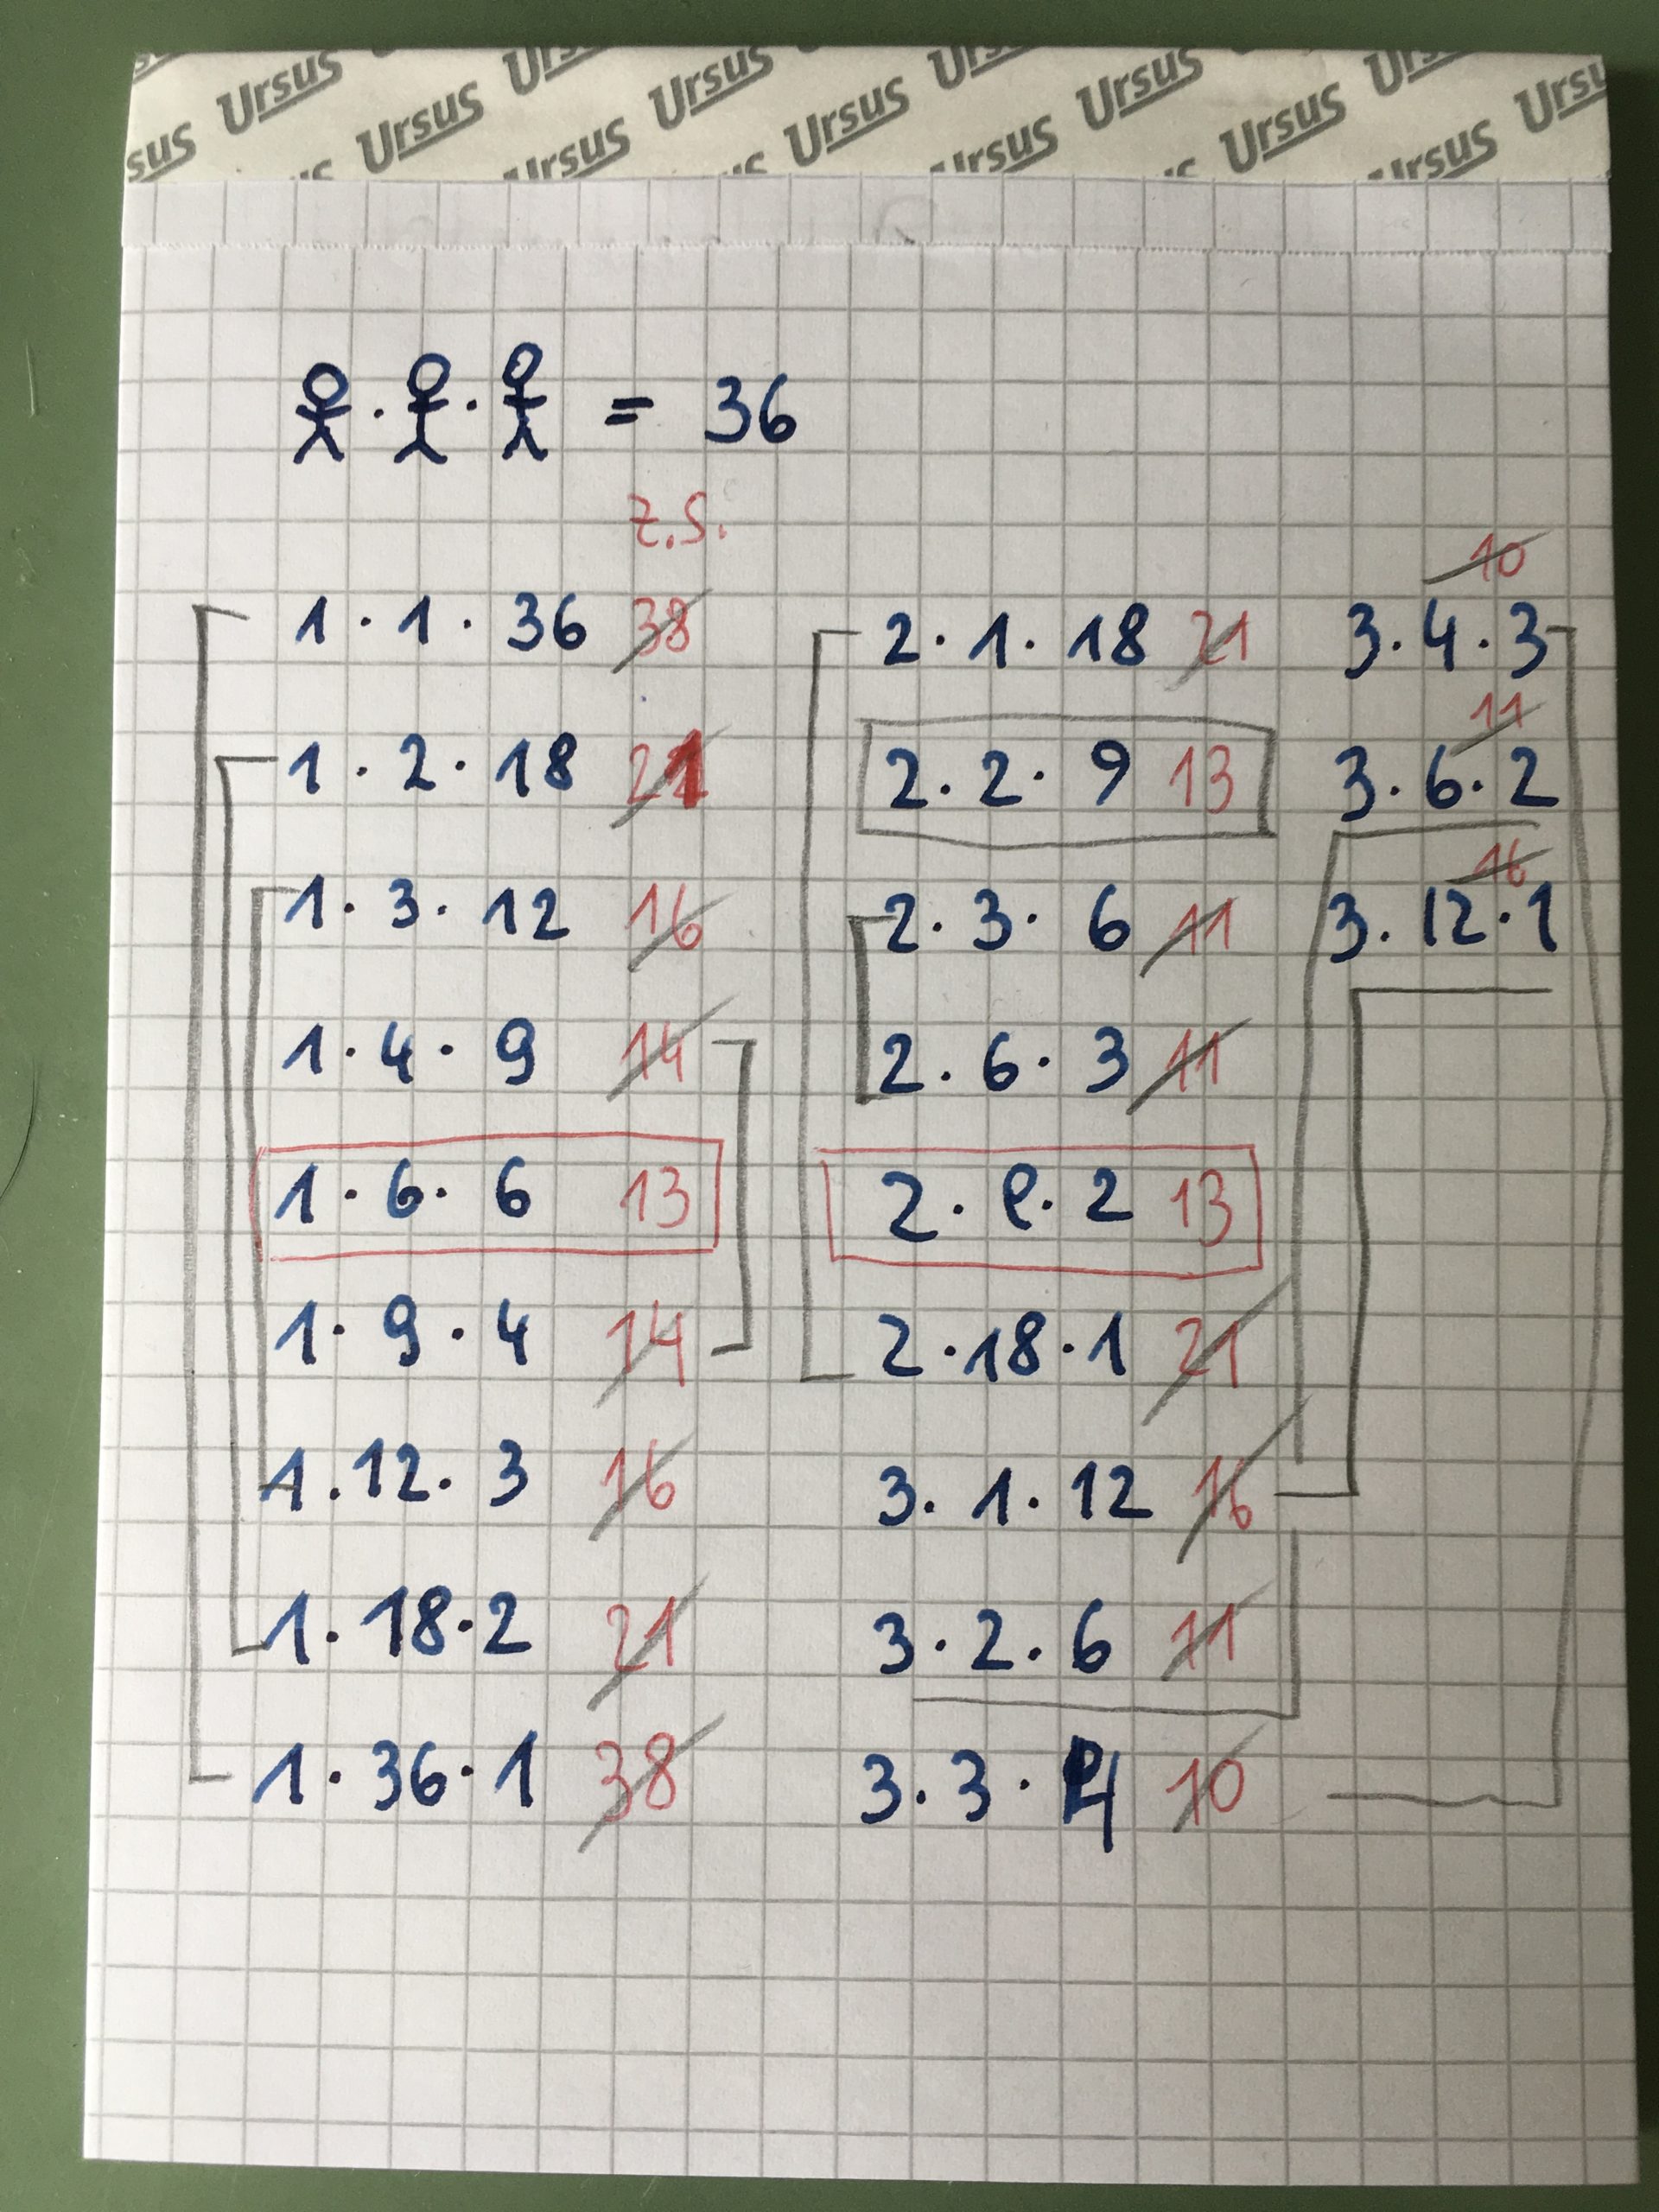 Ursus Ursus Ursus Ursus Ursus
Ursus Ursus Ursus Ursus Ursus
· · = 36
z.S.
1 · 1 · 36 38
1 · 2 · 18 21
1 · 3 · 12 16
1 · 4 · 9 14
1 · 6 · 6 13
1 · 9 · 4 14
1 · 12 · 3 16
1 · 18 · 2 21
1 · 36 · 1 38
2 · 1 · 18 21
2 · 2 · 9 13
2 · 3 · 6 11
2 · 6 · 3 11
2 · 9 · 2 13
2 · 18 · 1 21
3 · 1 · 12 16
3 · 2 · 6 11
3 · 3 · 4 10
10
3 · 4 · 3
11
3 · 6 · 2
16
3 · 12 · 1